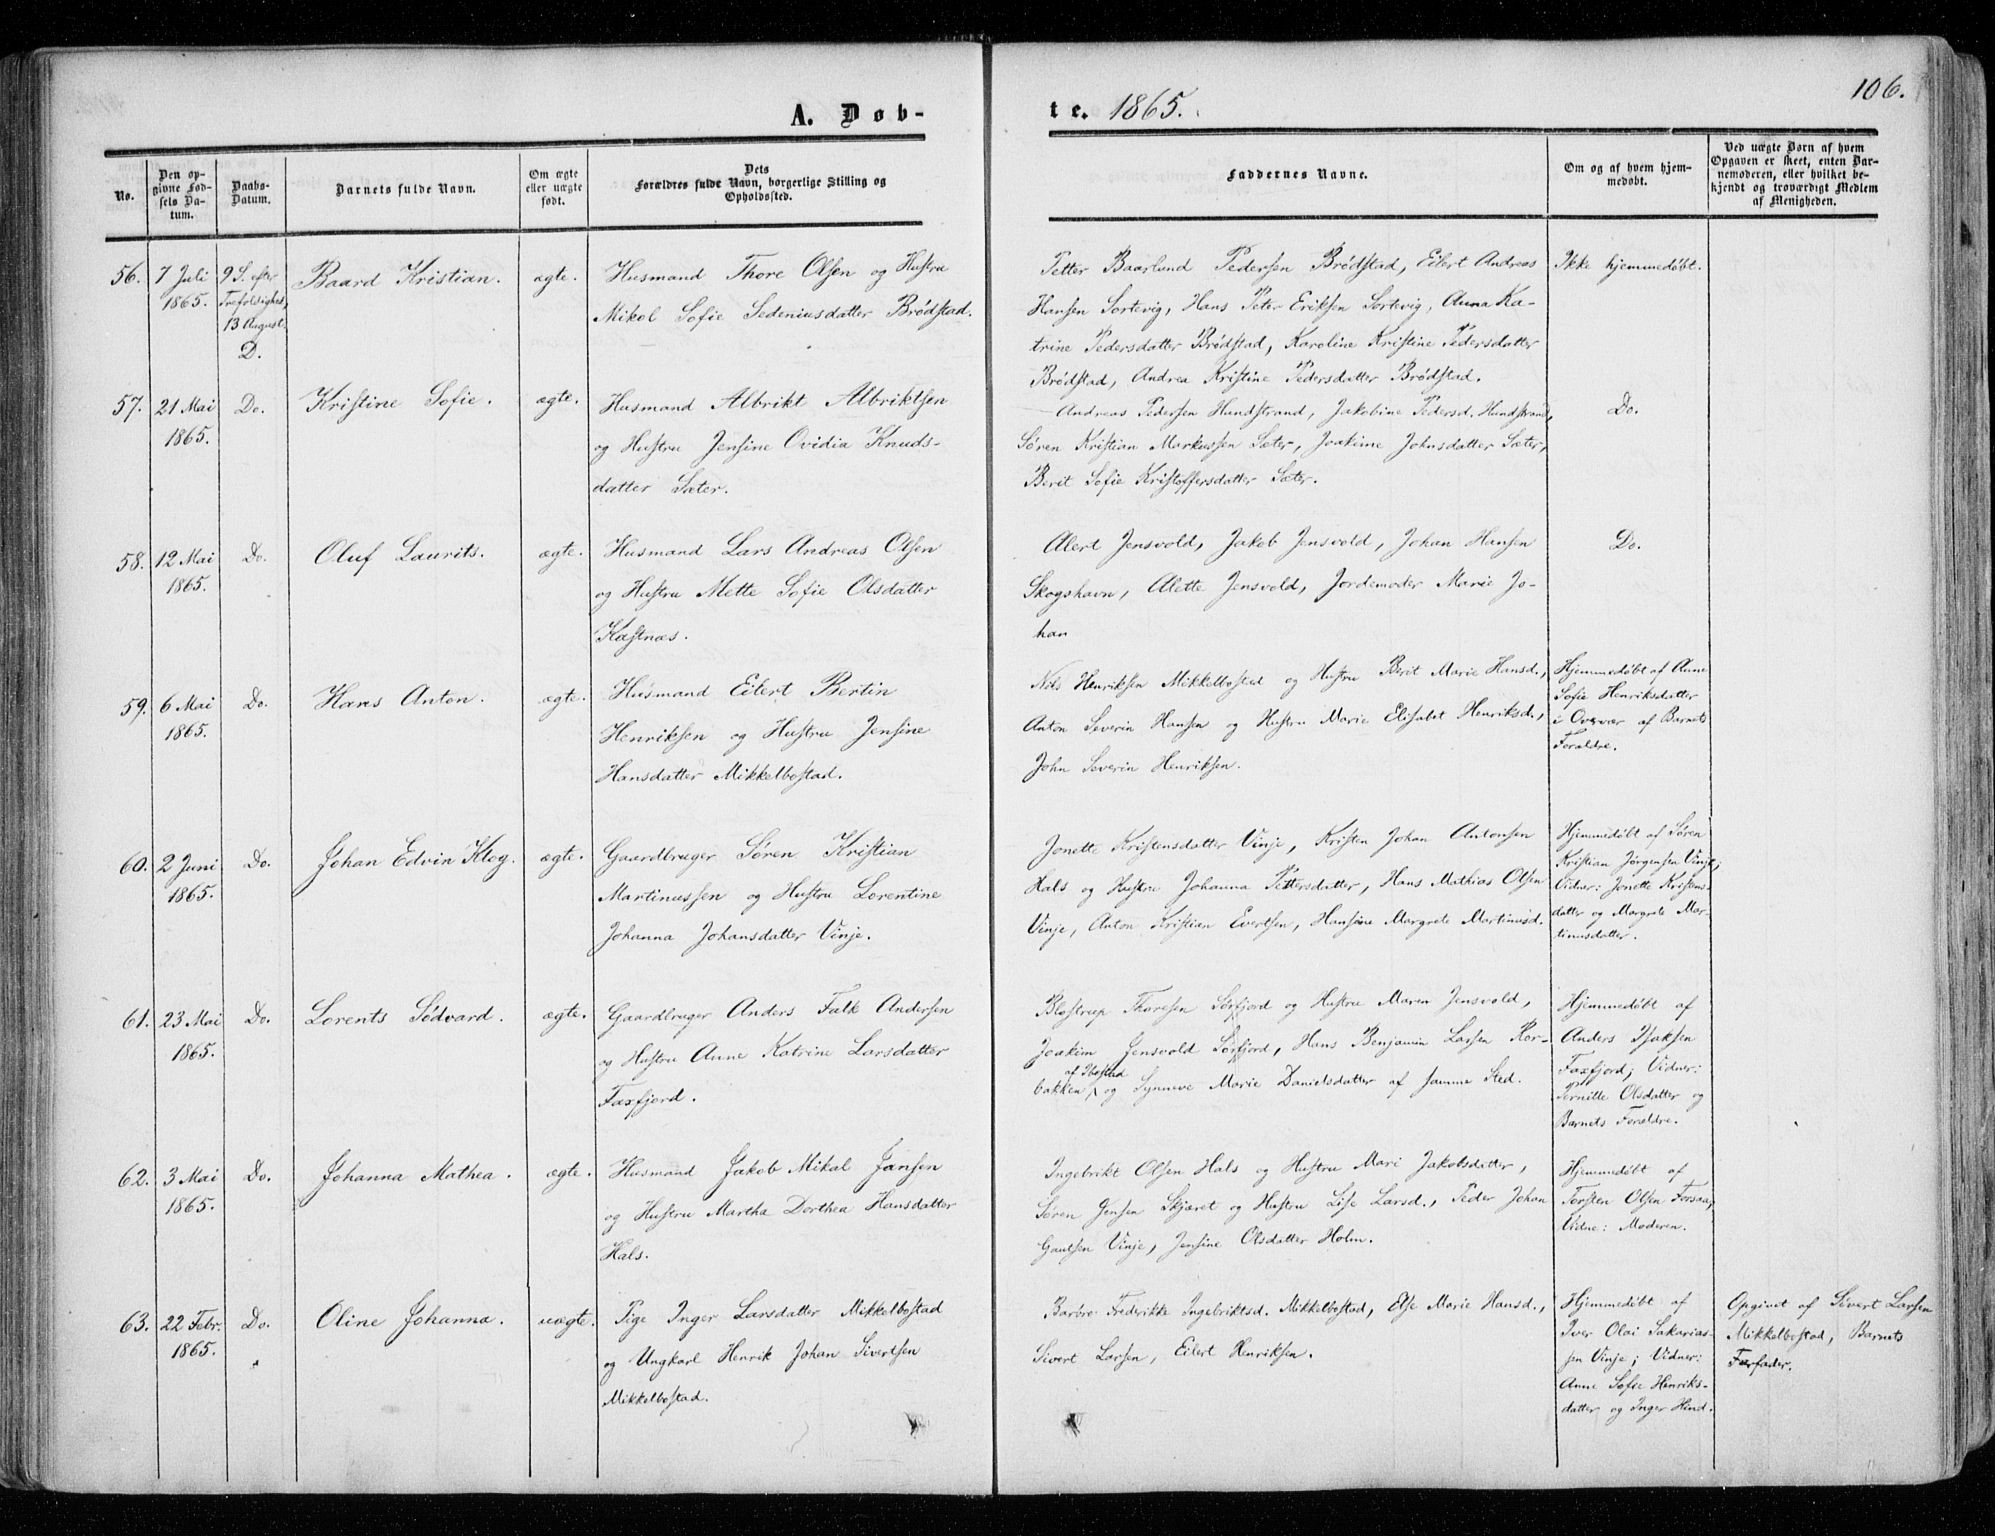 106.
A. Døb-
te. 1865.
No.
Den op-
givne Fød-
sels Da-
tum.
Daabs-
Datum.
Barnets fulde Navn.
Om ægte
eller uægte
født.
Dets
Forældres fulde Navn, borgerlige Stilling og
Opholdssted.
Faddernes Navne.
Om og af hvem hjem-
medøbt.
Ved uægte Børn af hvem
Opgaven er skeet, enten Bar-
nemoderen, eller hvilket be-
kjendt og troværdigt Medlem
af Menigheden.
56.
7 Juli
1865.
9 S. efter
Trefoldighed,
13 August.
D.
Baard Kristian.
ægte.
Husmand Thore Olsen og Hustru
Mikol Sofie Sedeniusdatter Brødstad.
Petter Baarlund Pedersen Brødstad, Eilert Andreas
Hansen Sortevig, Hans Peter Eriksen Sortevig, Anna Ka-
trine Pedersdatter Brødstad, Karoline Kristine Pedersdatter
Brødstad, Andrea Kristine Pedersdatter Brødstad.
Ikke hjemmedøbt.
57.
21 Mai
1865.
Do.
Kristine Sofie.
ægte.
Husmand Albrikt Albriktsen
og Hustru Jensine Ovidia Knuds-
datter Sæter.
Andreas Pedersen Hundstrand, Jakobine Pedersd. Hundstrand,
Søren Kristian Markussen Sæter, Joakime Johnsdatter Sæter,
Berit Sofie Kristoffersdatter Sæter.
Do.
58.
12 Mai
1865.
Do.
Oluf Laurits.
ægte.
Husmand Lars Andreas Olsen
og Hustru Mette Sofie Olsdatter
Kastnæs.
Alert Jensvold, Jakob Jensvold, Johan Hansen
Skogshavn, Alette Jensvold, Jordemoder Marie Jo-
han
Do.
59.
6 Mai
1865.
Do.
Hans Anton.
ægte.
Husmand Eilert Bertin
Henriksen og Hustru Jensine
Hansdatter Mikkelbostad.
Nils Henriksen Mikkelbostad og Hustru Berit Marie Hansd.,
Anton Severin Hansen og Hustru Marie Elisabet Henriksd.,
John Severin Henriksen.
Hjemmedøbt af Anne
Sofie Henriksdatter
i Overvær af Barnets
Forældre.
60.
2 Juni
1865.
Do.
Johan Edvin Klog.
ægte.
Gaardbruger Søren Kristian
Martinussen og Hustru Lorentine
Johanna Johansdatter Vinje.
Jonette Kristensdatter Vinje, Kristen Johan Antonsen
Hals og Hustru Johanna Pettersdatter, Hans Mathias Olsen
Vinje, Anton Kristian Evertsen, Hansine Margrete Martinusd.
Hjemmedøbt af Søren
Kristian Jørgensen Vinje;
Vidner: Jonette Kristens-
datter og Margrete Mar-
tinusdatter.
61.
23 Mai
1865.
Do.
Lorents Sødvard.
ægte.
Gaardbruger Anders Falk Andersen
og Hustru Anne Katrine Larsdatter
Faxfjord.
Blostrup Thoresen Sørfjord og Hustru Maren Jensvold,
Joakim Jensvold Sørfjord, Hans Benjamin Larsen Rør-
af Ibestad
bakken, og Synneve Marie Danielsdatter af samme Sted.
Hjemmedøbt af
Anders Isaksen
Faxfjord; Vidner:
Pernille Olsdatter og
Barnets Forældre.
62.
3 Mai
1865.
Do.
Johanna Mathea.
ægte.
Husmand Jakob Mikal Jansen
og Hustru Martha Dorthea Hansdatter
Hals.
Ingebrikt Olsen Hals og Hustru Mari Jakobsdatter,
Søren Jensen Skjæret og Hustru Lise Larsd., Peder Johan
Gautsen Vinje, Jensine Olsdatter Holm.
Hjemmedøbt af
Torsten Olsen Forsaa;
Vidne: Moderen.
63.
22 Febr.
1865.
Do.
Oline Johanna.
uægte.
Pige Inger Larsdatter Mikkelbostad
og Ungkarl Henrik Johan Sivertsen
Mikkelbostad.
Barbro Frederikke Ingebriktsd. Mikkelbostad, Else Marie Hansd.,
Sivert Larsen, Eilert Henriksen.
Hjemmedøbt af
Iver Olai Sakarias-
sen Vinje; Vidner:
Anne Sofie Henriks-
datter og Inger Hind.
Opgivet af Sivert Larsen
Mikkelbostad, Barnets
Farfader.